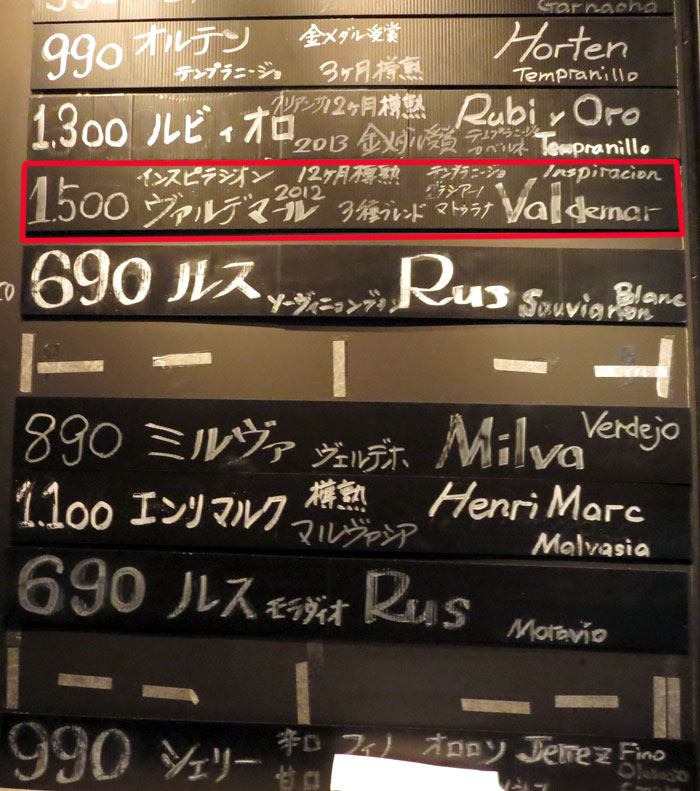 Garnacha
990 オルテン 金メダル受賞 Horten
テンプラニージョ 3ヶ月樽熟 Tempranillo
1.300 ルビィオロ クリアンサ 12ヶ月樽熟 Rubi y Oro
2013 金メダル受賞 テンプラニージョ カベルネ Tempranillo
インスピラシオン 12ヶ月樽熟 テンプラニージョ Inspiracion
1.500 ヴァルデマール 2012 3種ブレンド グラシアーノ マトゥラナ Valdemar
690 ルス ソーヴィニョンブラン Rus Sauvignon Blanc
890 ミルヴァ ヴェルデホ Milva Verdejo
1.100 エンリマルク 樽熟 Henri Marc
マルヴァシア Malvasia
690 ルス モラヴィオ Rus Moravio
990 シェリー 辛口 フィノ オロロソ Jerrez Fino
甘口